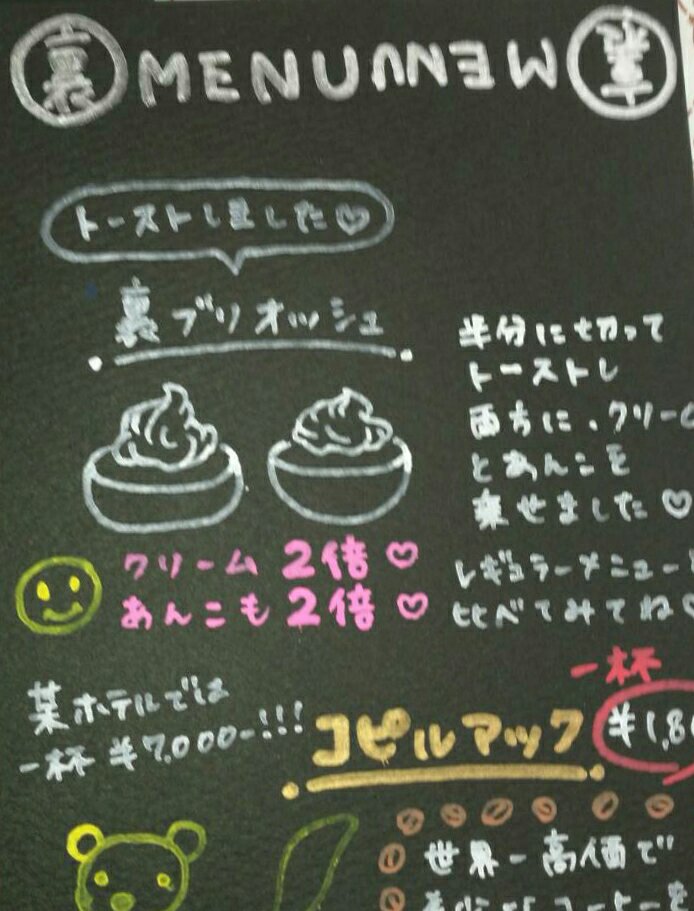 裏 MENUMENU 裏
トーストしました♡
裏ブリオッシュ
半分に切って
トーストし
両方に、クリーム
とあんこを
乗せました♡
クリーム 2倍♡
あんこも 2倍♡
レギュラーメニュー
比べてみてね♡
某ホテルでは
一杯 ¥7,000-!!!
一杯
コピルアック
¥1,8
世界一高価で